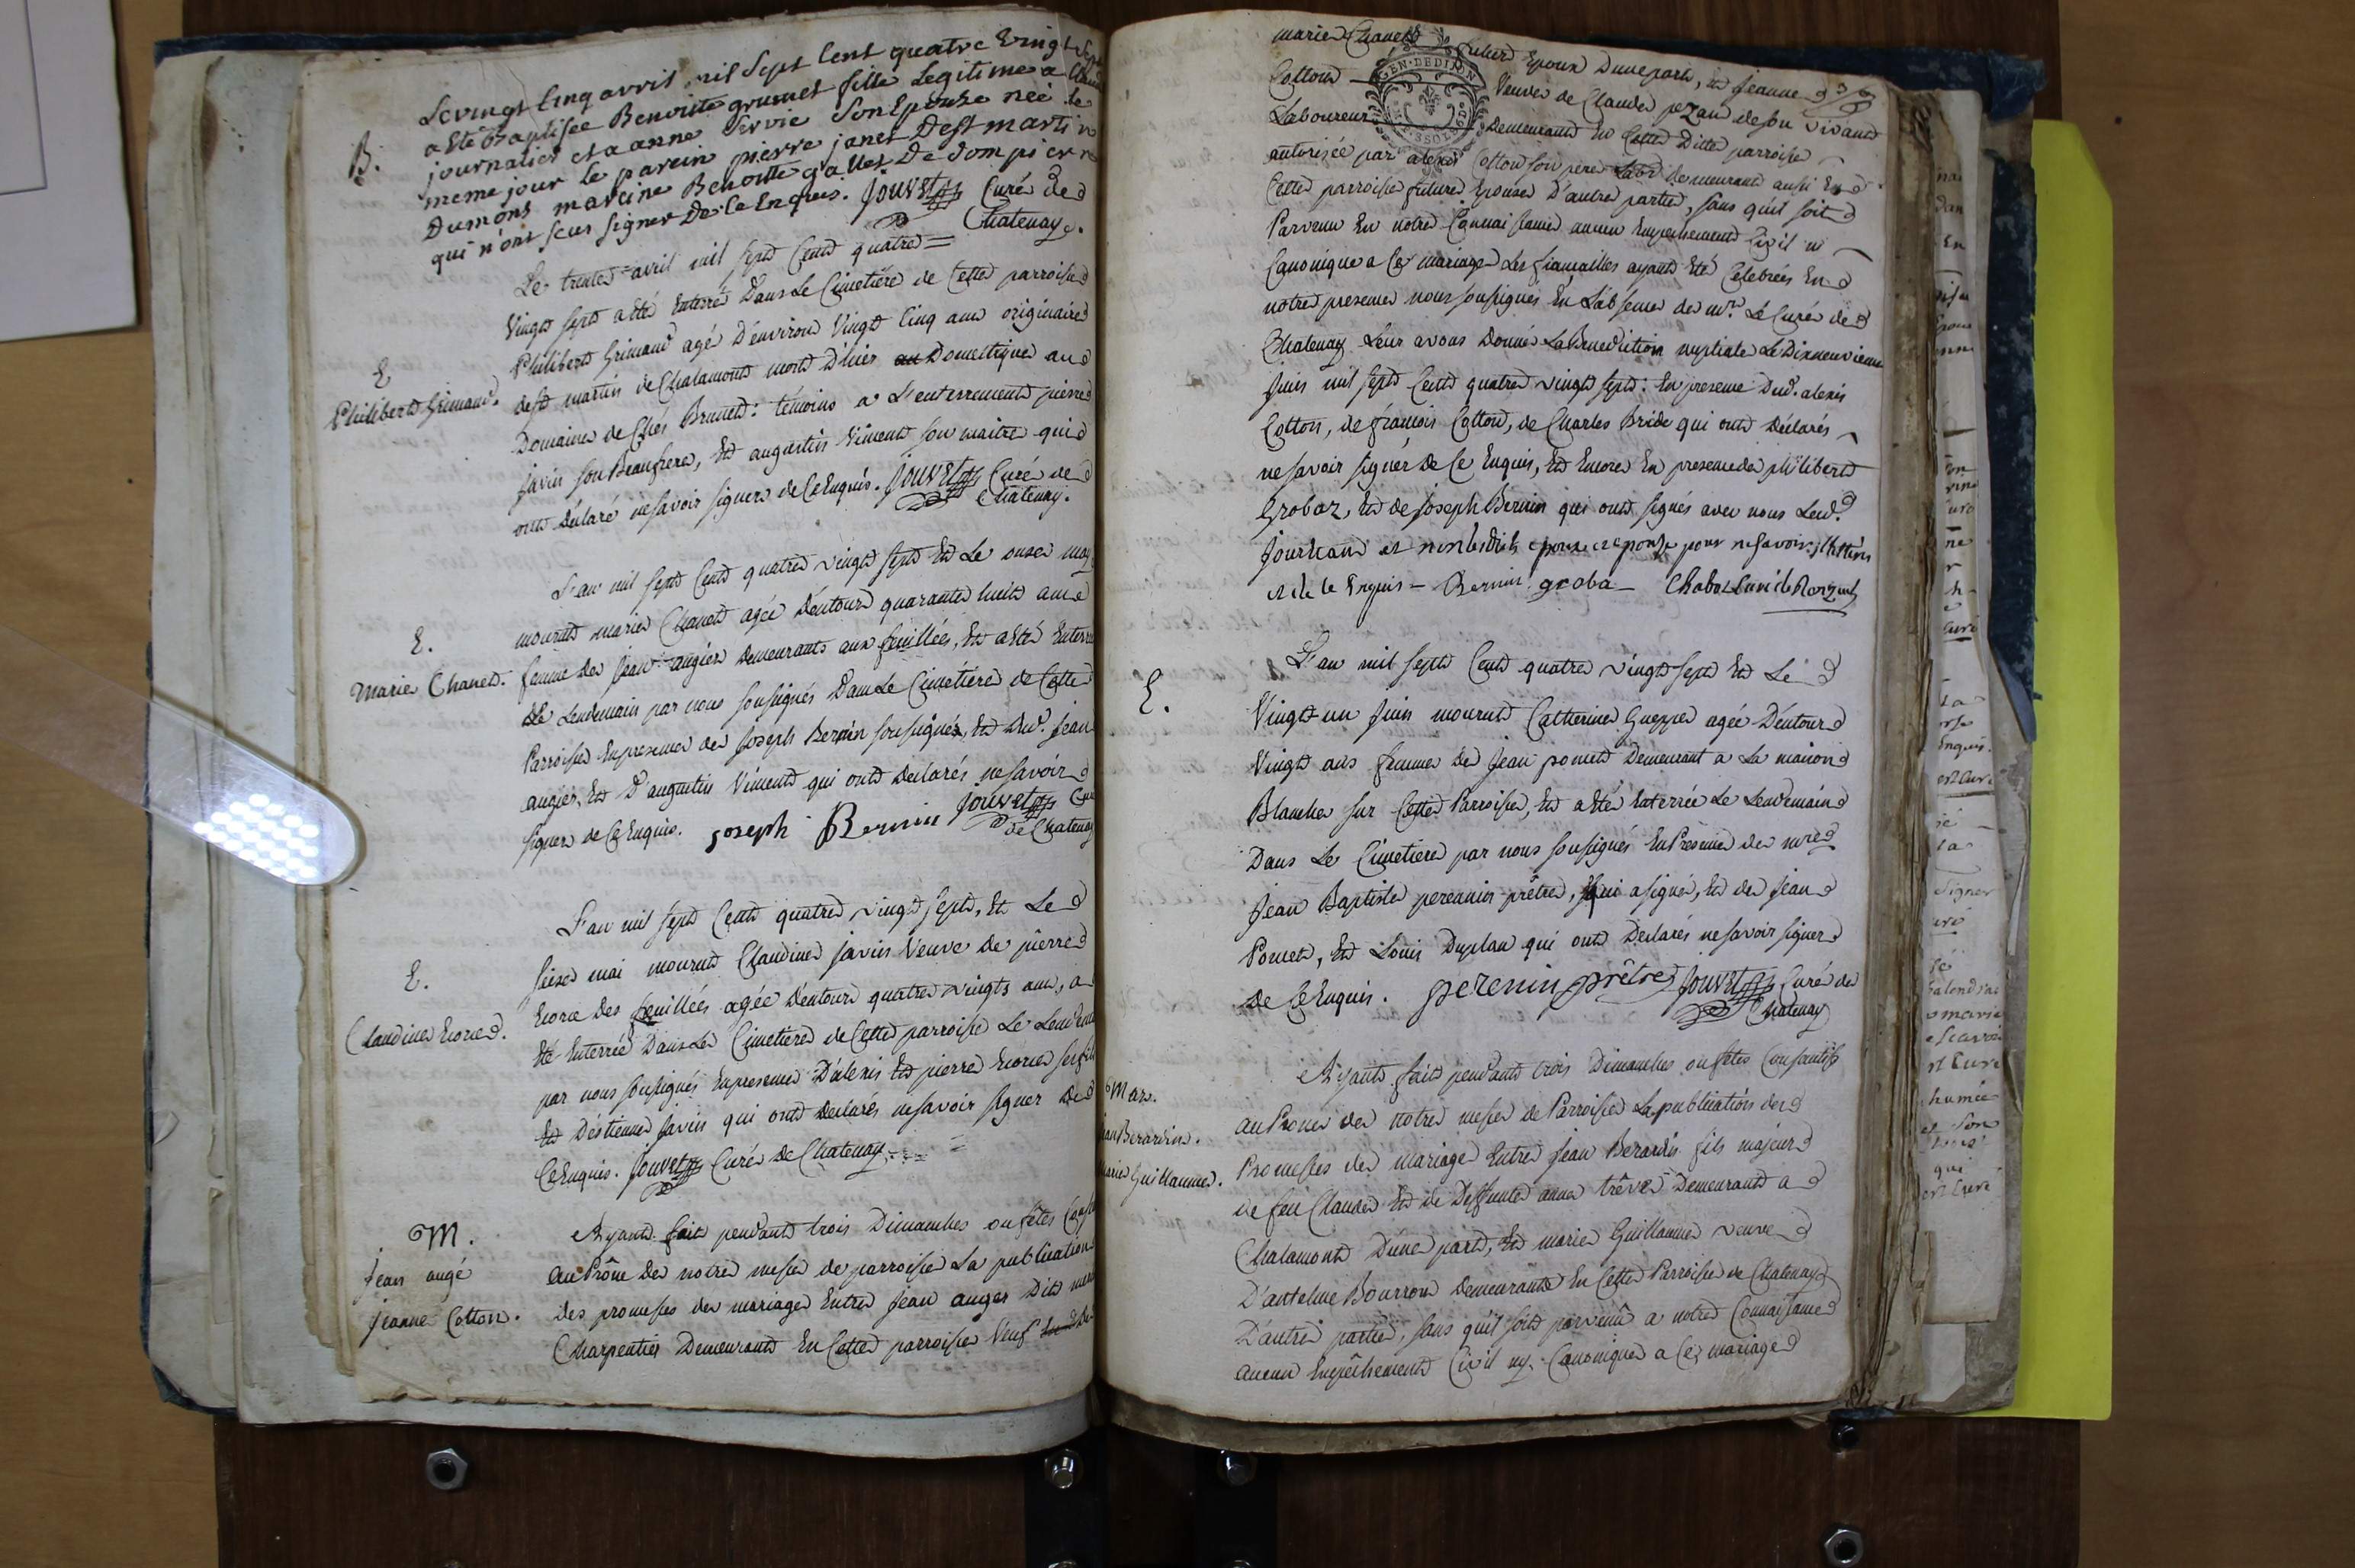 Le vingt Cinq avril mil Sept Cent quatre Vingt Sept
a été Baptisée Benoitte grumet fille Legitime a Claude
journalier et a anne Servie Son Epouse neé le
meme jour le parein pierre janet De st martin
Dumont mareine Benoitte gallet De Dompierre
qui n'ont sceu signer De ce Enquis. Jouvet Curé de
Chatenay.
B.
Le trente avril mil sept Cent quatre =
Vingt sept a été Enterré Dans Le Cimetiére de Cette parroisse
Philibert Grimaud agé D'environ Vingt Cinq ans originaire
E
Philibert Grimaud.
de st martin de Chalamont mort D'hier au Domestique au
Domaine de Chés Brunet: témoins a L'enterrement pierre
javin son Beaufrere, Et augustin Viment son maitre qui
ont Déclaré ne savoir signer de Ce Enquis. Jouvet Curé de
Chatenay.
L'an mil sept Cent quatre vingt sept Et Le onze may
mourut marie Chanet agée D'entour quarante huit ans
E.
Marie Chanet.
femme de jean augier demeurants aux feuillées, Et a été Enterrée
Le Lendemain par nous soussignés Dans Le Cimétiére de Cette
Parroisse En presence de Joseph Bernin soussignés, Et Dud. jean
augier, Et D'augustin Viment qui ont Declarés ne savoir
signer de Ce Enquis. joseph Bernin Jouvet Curé
de Chatenay
L'an mil sept Cent quatre vingt sept, Et Le
seize mai mourut Claudine javin Veuve de pierre
E.
Claudine Ecorce.
Ecorce des feuillées agée D'entour quatre vingts ans, a
Eté Enterrée Dans Le Cimetiere de Cette parroisse Le Lendemain
par nous soussignés En presence D'alexis Et pierre Ecorce ses fils
Et D'étienne javin qui ont Declarés ne savoir signer De
Ce Enquis. Jouvet Curé De Chatenay.
M.
Jean augé
jeanne Cotton.
Ayant fait pendant trois Dimanches ou fêtes
au Prône De notre messe de parroisse La publication
des promesses de mariage Entre jean auger Dit
Charpentier Demeurant En Cette parroisse Veuf
marie Chanet futur Epoux D'une part, Et jeanne
Cotton Veuve de Claude pezan de son vivant
GEN · DE DIJON
Laboureur Demeurant En Cette Ditte parroise
autorisée par alexis Cotton son pere demeurant aussi En
Cette parroisse future Epouse D'autre partie, sans qu'il soit
Parvenu En notre Connaissance aucun Empechement Civil ni
Canonique a Ce mariage Les fiançailles ayant été Celebrées En
notre presence nous soussignés En L'absence de mr. Le Curé de
Chatenay Leur avons Donnés La Benediction nuptiale Le Dixneuvieme
juin mil sept Cent quatre vingt sept: En presence Dud. alexis
Cotton, de françois Cotton, de Charles Bride qui ont Déclarés
ne savoir signer de Ce Enquis, Et Encore En presence de philibert
Grobaz, Et de joseph Bernin qui ont signés avec nous
et non lesdits epoux et epouse pour ne savoir
et de ce Enquis — Bernin groba —
E.
L'an mil sept Cent quatre vingt sept Et Le
Vingt un juin mourut Catherine Gueppe agée D'entour
Vingt ans femme De jean pomet Demeurant a La maison
Blanche sur Cette Parroisse, Et a été Enterrée Le Lendemain
Dans Le Cimetiere par nous soussignés En Présence de mre
jean Baptiste perennin prêtre, qui a signé, Et de jean
Pomet, Et Louis Duplan qui ont Declarés ne savoir signer
De Ce Enquis. perenin prêtre Jouvet Curé de
Chatenay
Mar.
jean Berardin.
marie Guillaume.
Ayant fait pendant trois Dimanches ou fêtes Consecutifs
au Prone de notre messe de Parroisse La publication des
Promesses de mariage Entre jean Berardin fils majeur
de feu Claude Et de Deffunte anne trêve Demeurant a
Chalamont D'une part, Et marie Guillaume veuve
D'antelme Bourron demeurante En Cette Parroisse de Chatenay
D'autre partie, sans qu'il soit parvenû a notre Connaissance
aucun Empêchement Civil ny Canonique a Ce mariage